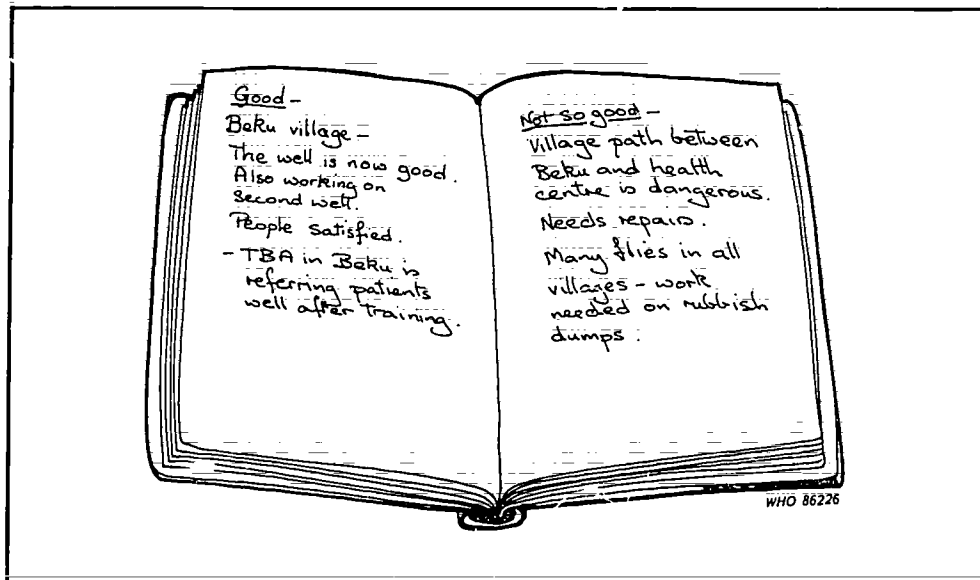 Good -
Beku village -
The well is now good.
Also working on
second well.
People satisfied.
- TBA in Beku is
referring patients
well after training.
Not so good -
Village path between
Beku and health
centre is dangerous.
Needs repairs.
Many flies in all
villages - work
needed on rubbish
dumps.
WHO 86226